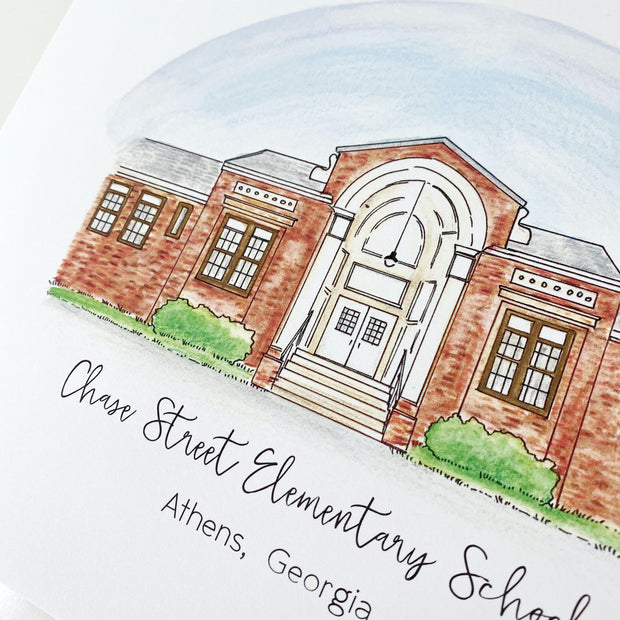 Chase Street Elementary School
Athens, Georgia